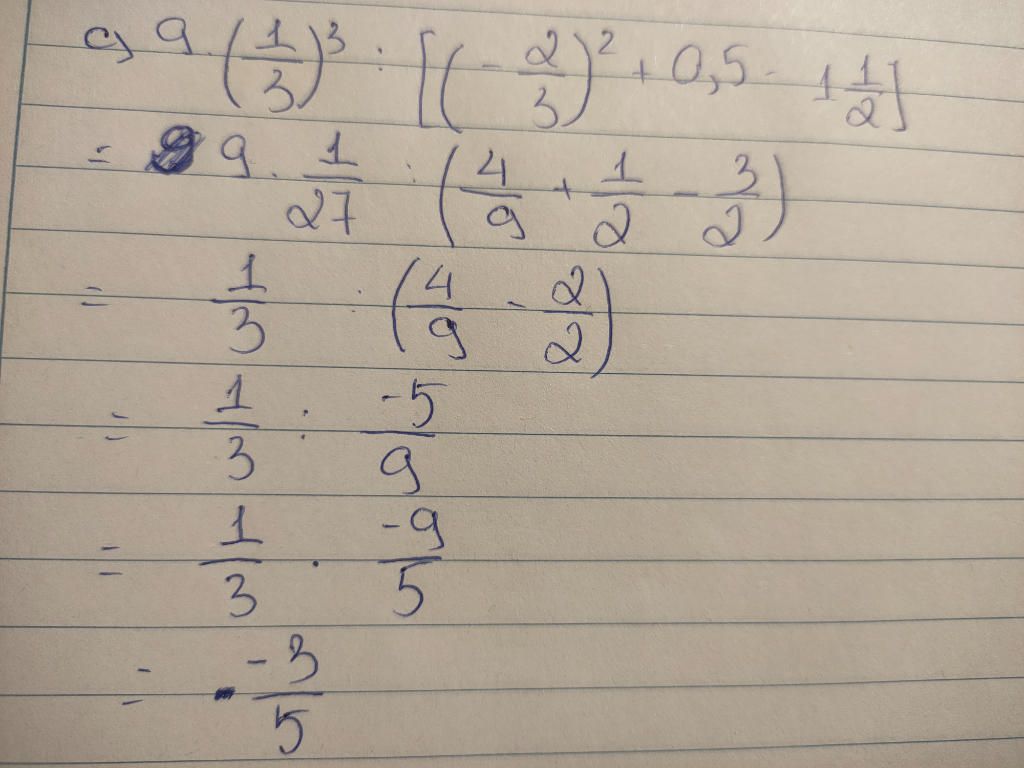 c) 9 · (1/3)³ : [(-2/3)² + 0,5 - 1 1/2]
= 9 · 1/27 : (4/9 + 1/2 - 3/2)
= 1/3 : (4/9 - 2/2)
= 1/3 : -5/9
= 1/3 · -9/5
= -3/5